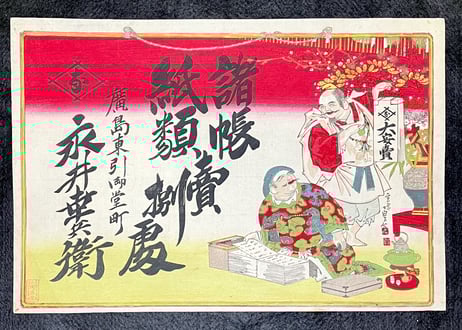 大安賣
諸帳
紙類
賣捌處
廣島東引御堂町
永井幸兵衛